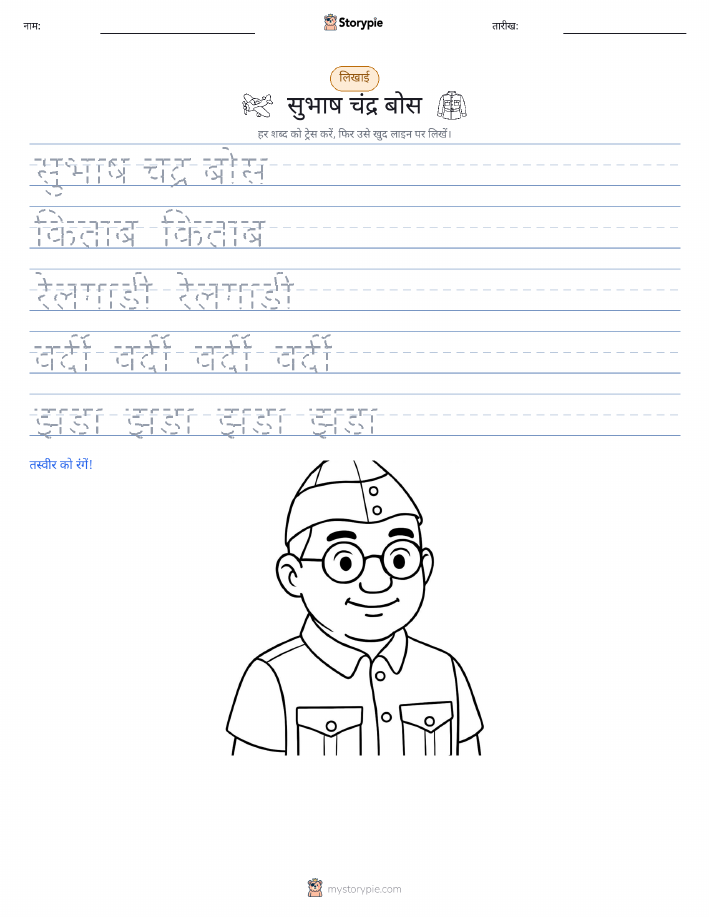 नाम:
Storypie
तारीख:
लिखाई
सुभाष चंद्र बोस
हर शब्द को ट्रेस करें, फिर उसे खुद लाइन पर लिखें।
सुभाष चद्र बोस
किताब किताब
रेलगाडी रेलगाडी
वर्दी वर्दी वर्दी वर्दी
झडा झडा झडा झडा
तस्वीर को रंगें!
mystorypie.com